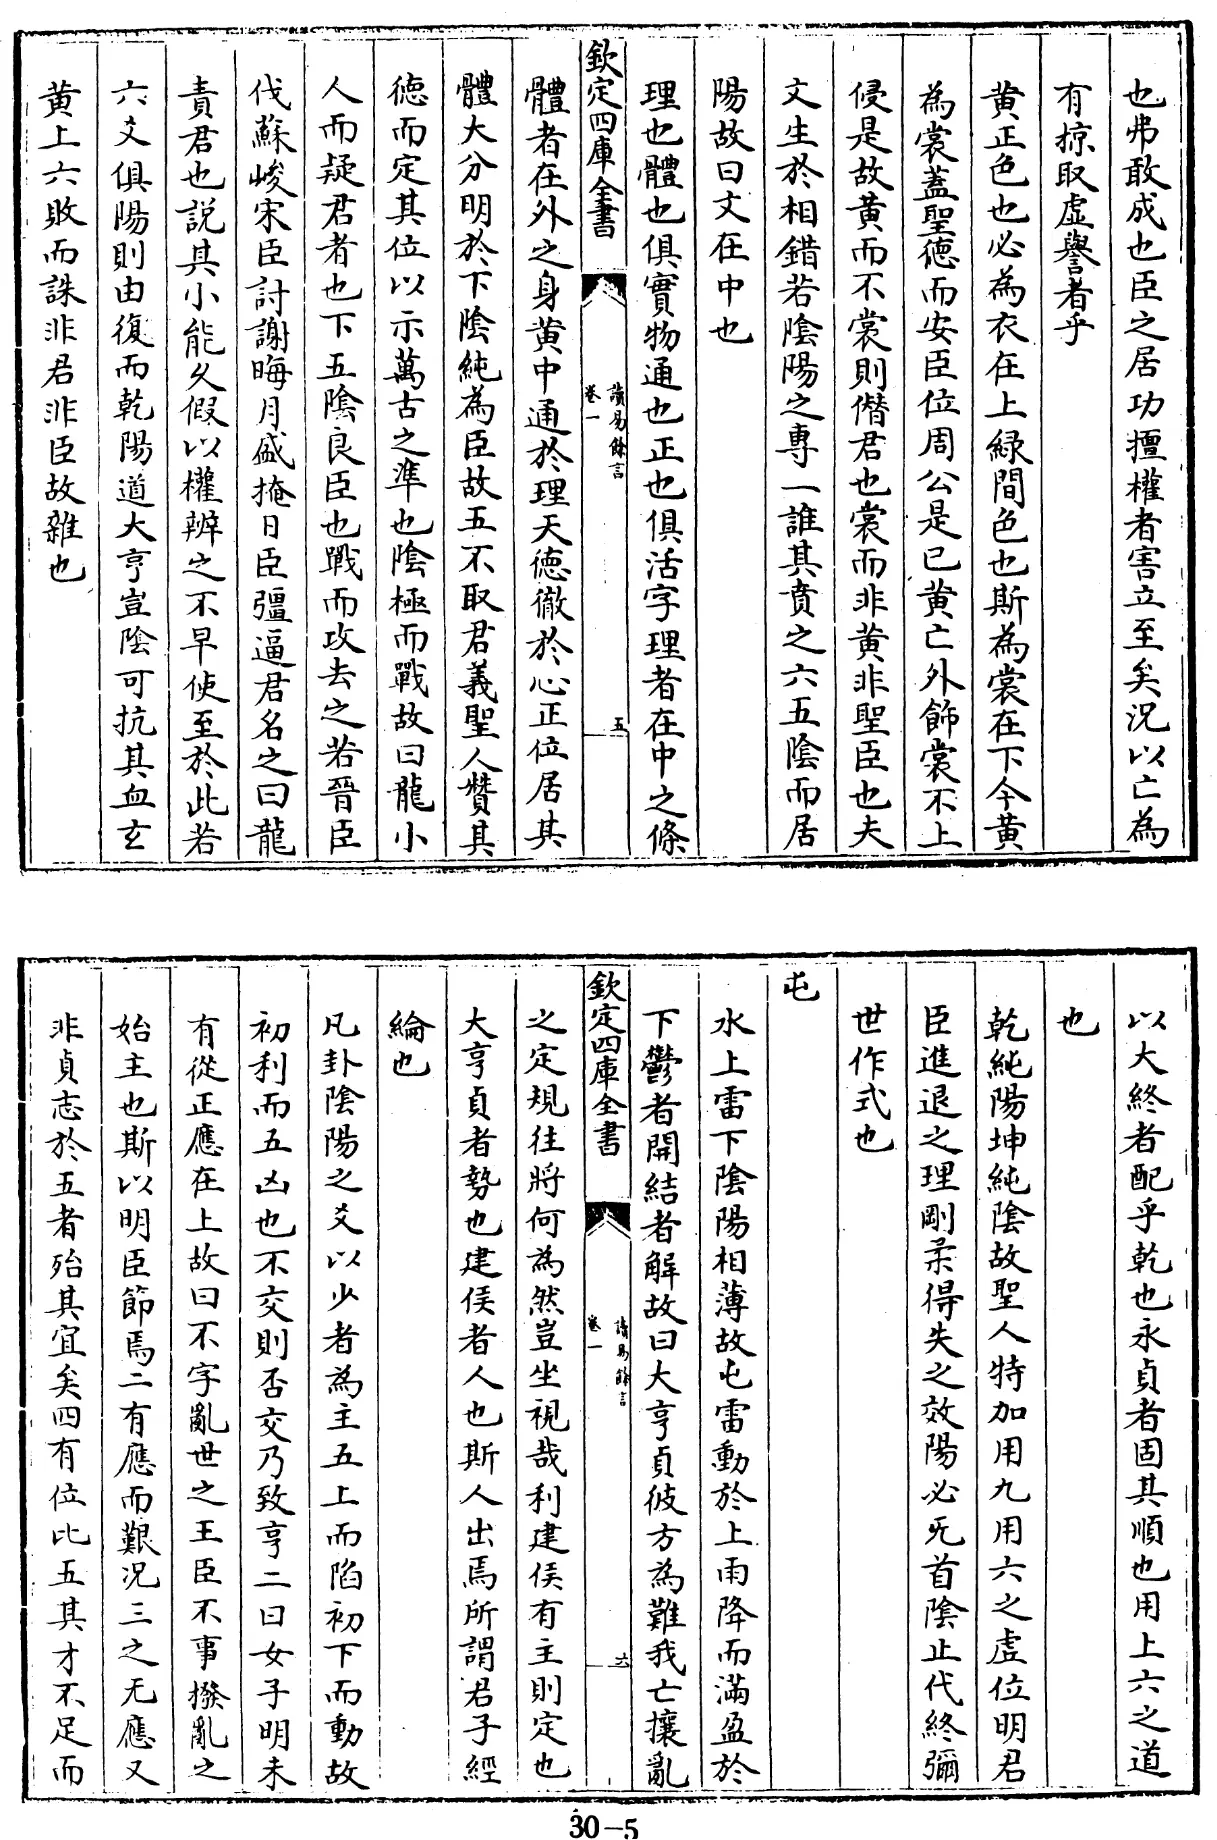 也弗敢成也臣之居功擅權者害立至矣況以亡為
有掠取虛譽者乎
黄正色也必為衣在上緑間色也斯為裳在下今黄
為裳蓋聖德而安臣位周公是已黄亡外飾裳不上
侵是故黄而不裳則僭君也裳而非黄非聖臣也夫
文生於相錯若陰陽之專一誰其賁之六五陰而居
陽故曰文在中也
理也體也俱實物通也正也俱活字理者在中之條
欽定四庫全書
讀易餘言
卷一
五
體者在外之身黄中通於理天德徹於心正位居其
體大分明於下陰純為臣故五不取君義聖人贊其
德而定其位以示萬古之準也陰極而戰故曰龍小
人而疑君者也下五陰良臣也戰而攻去之若晉臣
伐蘇峻宋臣討謝晦月盛掩日臣彊逼君名之曰龍
責君也説其小能久假以權辨之不早使至於此若
六爻俱陽則由復而乾陽道大亨豈陰可抗其血玄
黄上六敗而誅非君非臣故雜也
以大終者配乎乾也永貞者固其順也用上六之道
也
乾純陽坤純陰故聖人特加用九用六之虛位明君
臣進退之理剛柔得失之效陽必旡首陰止代終彌
世作式也
屯
水上雷下陰陽相薄故屯雷動於上雨降而滿盈於
下鬱者開結者解故曰大亨貞彼方為難我亡攘亂
欽定四庫全書
讀易餘言
卷一
六
之定規往將何為然豈坐視哉利建侯有主則定也
大亨貞者勢也建侯者人也斯人出焉所謂君子經
綸也
凡卦陰陽之爻以少者為主五上而陷初下而動故
初利而五凶也不交則否交乃致亨二曰女子明未
有從正應在上故曰不字亂世之王臣不事撥亂之
始主也斯以明臣節焉二有應而艱況三之无應又
非貞志於五者殆其宜矣四有位比五其才不足而
30-5